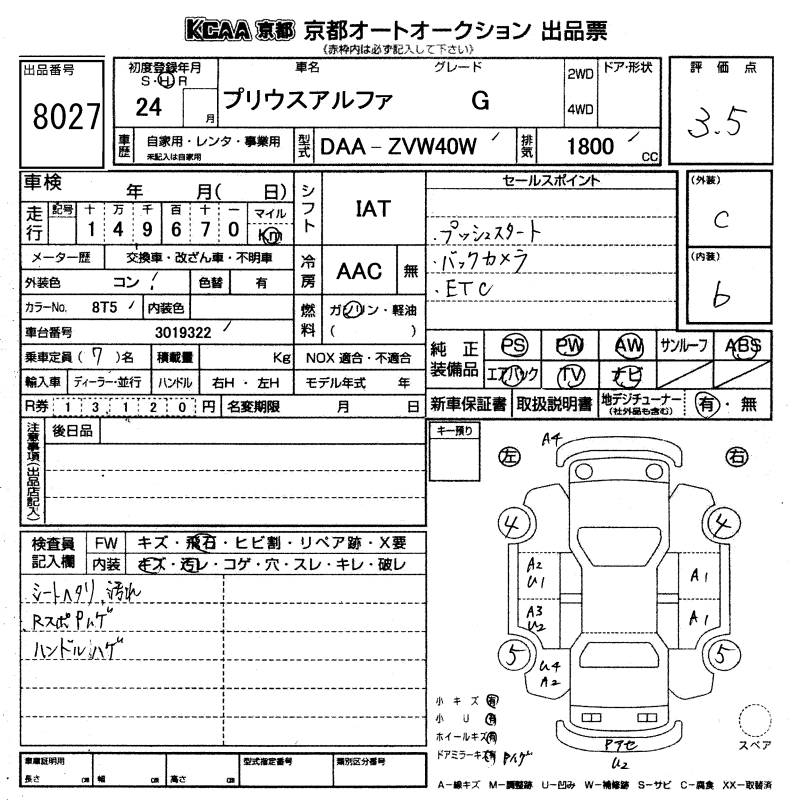 KCAA 京都 京都オートオークション 出品票
《赤枠内は必ず記入して下さい》
出品番号
8027
初度登録年月
S・H・R
24 月
車名
プリウスアルファ
グレード
G
2WD
4WD
ドア・形状
評価点
3.5
車歴
自家用・レンタ・事業用
未記入は自家用
型式
DAA－ZVW40W
排気
1800 CC
車検 年 月( 日)
走行
記号 十 万 千 百 十 一 マイル
1 4 9 6 7 0 Km
メーター歴 交換車・改ざん車・不明車
外装色 コン 色替 有
カラーNo. 8T5 内装色
車台番号 3019322
乗車定員(7)名 積載量 Kg
輸入車 ディーラー・並行 ハンドル 右H・左H
R券 1 3 1 2 0 円 名変期限 月 日
シフト
IAT
冷房
AAC 無
燃料
ガソリン・軽油
( )
NOX 適合・不適合
モデル年式 年
セールスポイント
・プッシュスタート
・バックカメラ
・ETC
(外装)
C
(内装)
b
純正装備品
PS PW AW サンルーフ ABS
エアバック TV ナビ
新車保証書 取扱説明書 地デジチューナー(社外品も含む) 有・無
注意事項(出品店記入)
後日品
キー預り
検査員記入欄
FW キズ・飛石・ヒビ割・リペア跡・X要
内装 キズ・汚レ・コゲ・穴・スレ・キレ・破レ
シートヘタリ、汚れ
Rスポ Pハゲ
ハンドルハゲ
左 右
A4
4 4
A2
U1
A1
A3
U2
A1
5 5
U4
A2
Pアセ
U2
小キズ 有
小U 有
ホイールキズ 有
ドアミラーキズ 有 Pハゲ
スペア
車庫証明用
長さ cm 幅 cm 高さ cm
型式指定番号
類別区分番号
A－線キズ M－調整跡 U－凹み W－補修跡 S－サビ C－腐食 XX－取替済